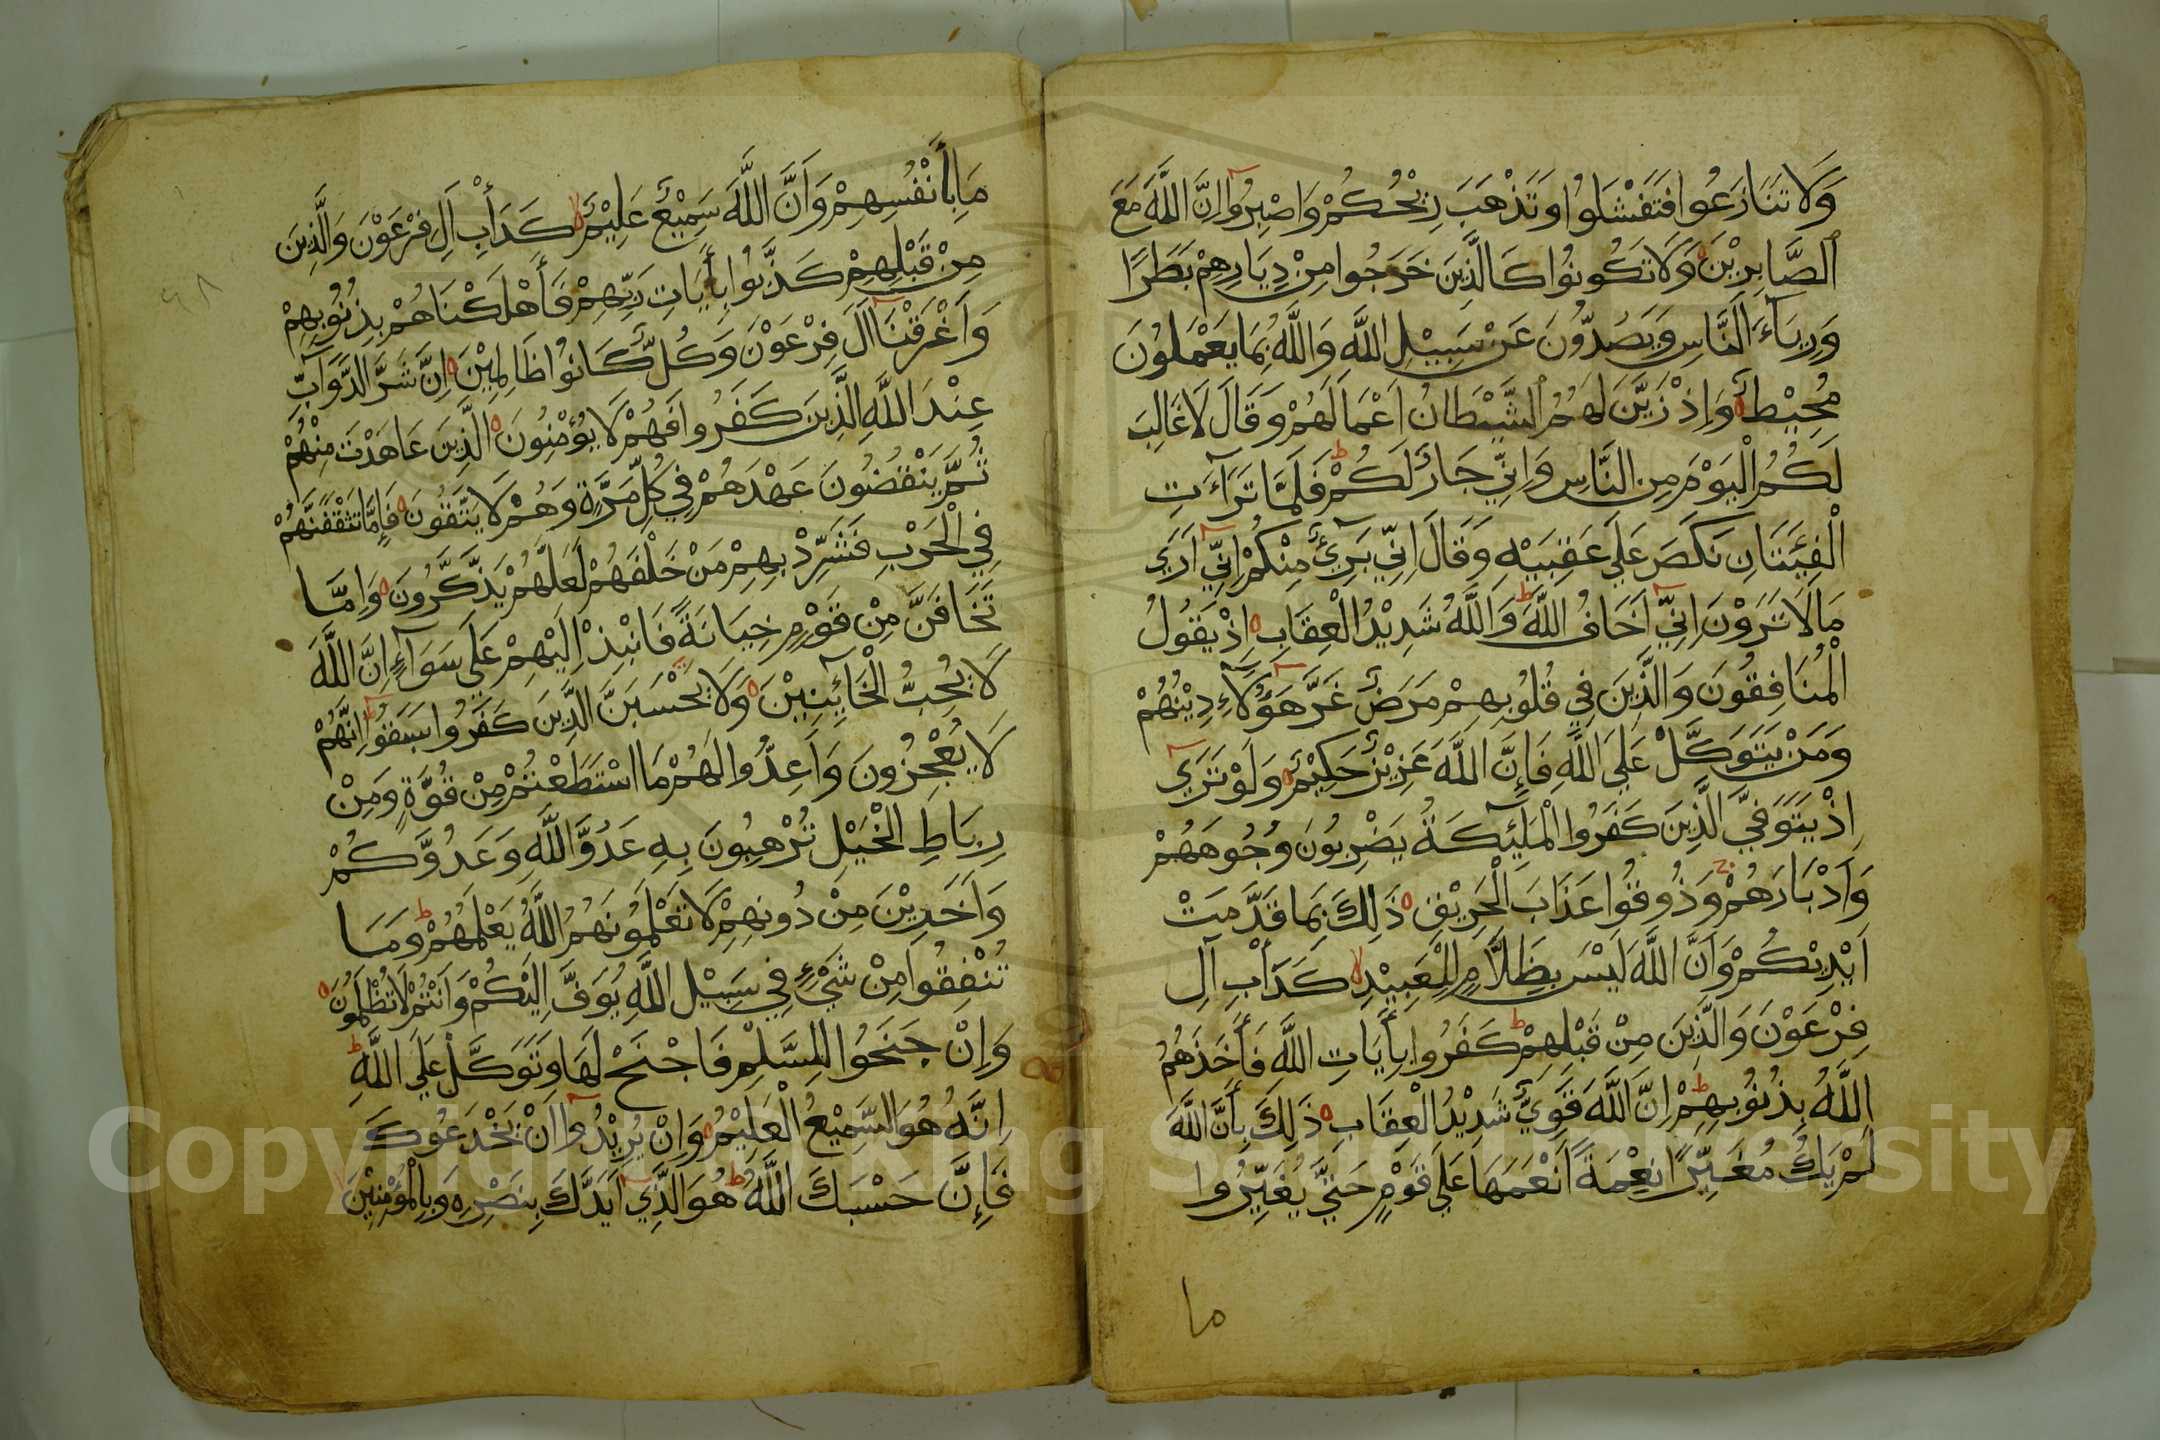 وَلَا تَنَازَعُوا فَتَفْشَلُوا وَتَذْهَبَ رِيْحُكُمْ وَاصْبِرُوا اِنَّ اللَّهَ مَعَ
الصَّابِرِيْنَ وَلَا تَكُونُوا كَالَّذِينَ خَرَجُوا مِنْ دِيَارِهِمْ بَطَرًا
وَرِيَآءَ النَّاسِ وَيَصُدُّونَ عَنْ سَبِيْلِ اللَّهِ وَاللَّهُ بِمَا يَعْمَلُونَ
مُحِيْطٌ وَاِذْ زَيَّنَ لَهُمُ الشَّيْطَانُ اَعْمَالَهُمْ وَقَالَ لَا غَالِبَ
لَكُمُ الْيَوْمَ مِنَ النَّاسِ وَاِنِّي جَارٌ لَكُمْ فَلَمَّا تَرَآءَتِ
الْفِئَتَانِ نَكَصَ عَلَي عَقِبَيْهِ وَقَالَ اِنِّي بَرِيٓءٌ مِنْكُمْ اِنِّي اَرَي
مَا لَا تَرَوْنَ اِنِّي اَخَافُ اللَّهَ وَاللَّهُ شَدِيْدُ الْعِقَابِ اِذْ يَقُولُ
الْمُنَافِقُونَ وَالَّذِينَ فِي قُلُوبِهِمْ مَرَضٌ غَرَّ هَؤُلَآءِ دِيْنُهُمْ
وَمَنْ يَتَوَكَّلْ عَلَي اللَّهِ فَاِنَّ اللَّهَ عَزِيْزٌ حَكِيْمٌ وَلَوْ تَرَي
اِذْ يَتَوَفَّي الَّذِينَ كَفَرُوا الْمَلَٓئِكَةُ يَضْرِبُونَ وُجُوهَهُمْ
وَاَدْبَارَهُمْ وَذُوقُوا عَذَابَ الْحَرِيْقِ ذَلِكَ بِمَا قَدَّمَتْ
اَيْدِيْكُمْ وَاَنَّ اللَّهَ لَيْسَ بِظَلَّامٍ لِلْعَبِيْدِ كَدَأْبِ آلِ
فِرْعَوْنَ وَالَّذِينَ مِنْ قَبْلِهِمْ كَفَرُوا بِأَيَاتِ اللَّهِ فَأَخَذَهُمُ
اللَّهُ بِذُنُوبِهِمْ اِنَّ اللَّهَ قَوِيٌّ شَدِيْدُ الْعِقَابِ ذَلِكَ بِأَنَّ اللَّهَ
لَمْ يَكُ مُغَيِّرًا نِعْمَةً اَنْعَمَهَا عَلَي قَوْمٍ حَتَّي يُغَيِّرُوا
ما
مَا بِأَنْفُسِهِمْ وَاَنَّ اللَّهَ سَمِيْعٌ عَلِيْمٌ كَدَأْبِ آلِ فِرْعَوْنَ وَالَّذِينَ
مِنْ قَبْلِهِمْ كَذَّبُوا بِأَيَاتِ رَبِّهِمْ فَأَهْلَكْنَاهُمْ بِذُنُوبِهِمْ
وَاَغْرَقْنَا آلَ فِرْعَوْنَ وَكُلٌّ كَانُوا ظَالِمِيْنَ اِنَّ شَرَّ الدَّوَآبِّ
عِنْدَ اللَّهِ الَّذِينَ كَفَرُوا فَهُمْ لَا يُؤْمِنُونَ الَّذِينَ عَاهَدْتَ مِنْهُمْ
ثُمَّ يَنْقُضُونَ عَهْدَهُمْ فِي كُلِّ مَرَّةٍ وَهُمْ لَا يَتَّقُونَ فَاِمَّا تَثْقَفَنَّهُمْ
فِي الْحَرْبِ فَشَرِّدْ بِهِمْ مَنْ خَلْفَهُمْ لَعَلَّهُمْ يَذَّكَّرُونَ وَاِمَّا
تَخَافَنَّ مِنْ قَوْمٍ خِيَانَةً فَانْبِذْ اِلَيْهِمْ عَلَي سَوَآءٍ اِنَّ اللَّهَ
لَا يُحِبُّ الْخَآئِنِيْنَ وَلَا يَحْسَبَنَّ الَّذِينَ كَفَرُوا سَبَقُوا اِنَّهُمْ
لَا يُعْجِزُونَ وَاَعِدُّوا لَهُمْ مَا اسْتَطَعْتُمْ مِنْ قُوَّةٍ وَمِنْ
رِبَاطِ الْخَيْلِ تُرْهِبُونَ بِهِ عَدُوَّ اللَّهِ وَعَدُوَّكُمْ
وَآخَرِيْنَ مِنْ دُونِهِمْ لَا تَعْلَمُونَهُمُ اللَّهُ يَعْلَمُهُمْ وَمَا
تُنْفِقُوا مِنْ شَيْءٍ فِي سَبِيْلِ اللَّهِ يُوَفَّ اِلَيْكُمْ وَاَنْتُمْ لَا تُظْلَمُونَ
وَاِنْ جَنَحُوا لِلسَّلْمِ فَاجْنَحْ لَهَا وَتَوَكَّلْ عَلَي اللَّهِ
اِنَّهُ هُوَ السَّمِيْعُ الْعَلِيْمُ وَاِنْ يُرِيْدُوا اَنْ يَخْدَعُوكَ
فَاِنَّ حَسْبَكَ اللَّهُ هُوَ الَّذِي اَيَّدَكَ بِنَصْرِهِ وَبِالْمُؤْمِنِيْنَ